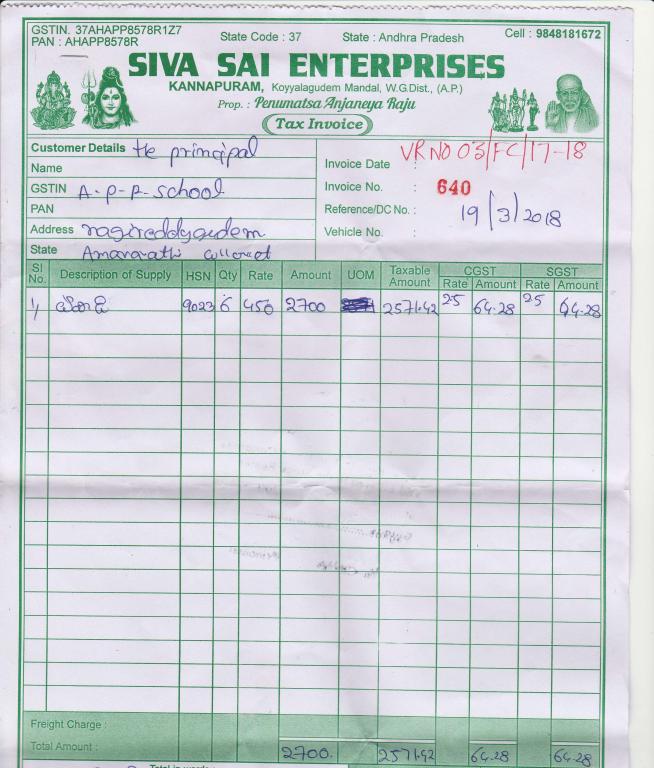 GSTIN. 37AHAPP8578R1Z7 State Code : 37 State : Andhra Pradesh Cell : 9848181672
PAN : AHAPP8578R
SIVA SAI ENTERPRISES
KANNAPURAM, Koyyalagudem Mandal, W.G.Dist., (A.P.)
Prop. : Penumatsa Anjaneya Raju
Tax Invoice
Customer Details The principal
Name
GSTIN A.P.R. School
PAN
Address nagireddygudem
State Amaravathi
Invoice Date : VR NO 03/FC/17-18
Invoice No. : 640
Reference/DC No. : 19/3/2018
Vehicle No. :
Sl No. Description of Supply HSN Qty Rate Amount UOM Taxable Amount CGST Rate Amount SGST Rate Amount
1/ 9023 6 450 2700 2571.42 25 64.28 25 64.28
Freight Charge :
Total Amount : 2700. 2571.42 64.28 64.28